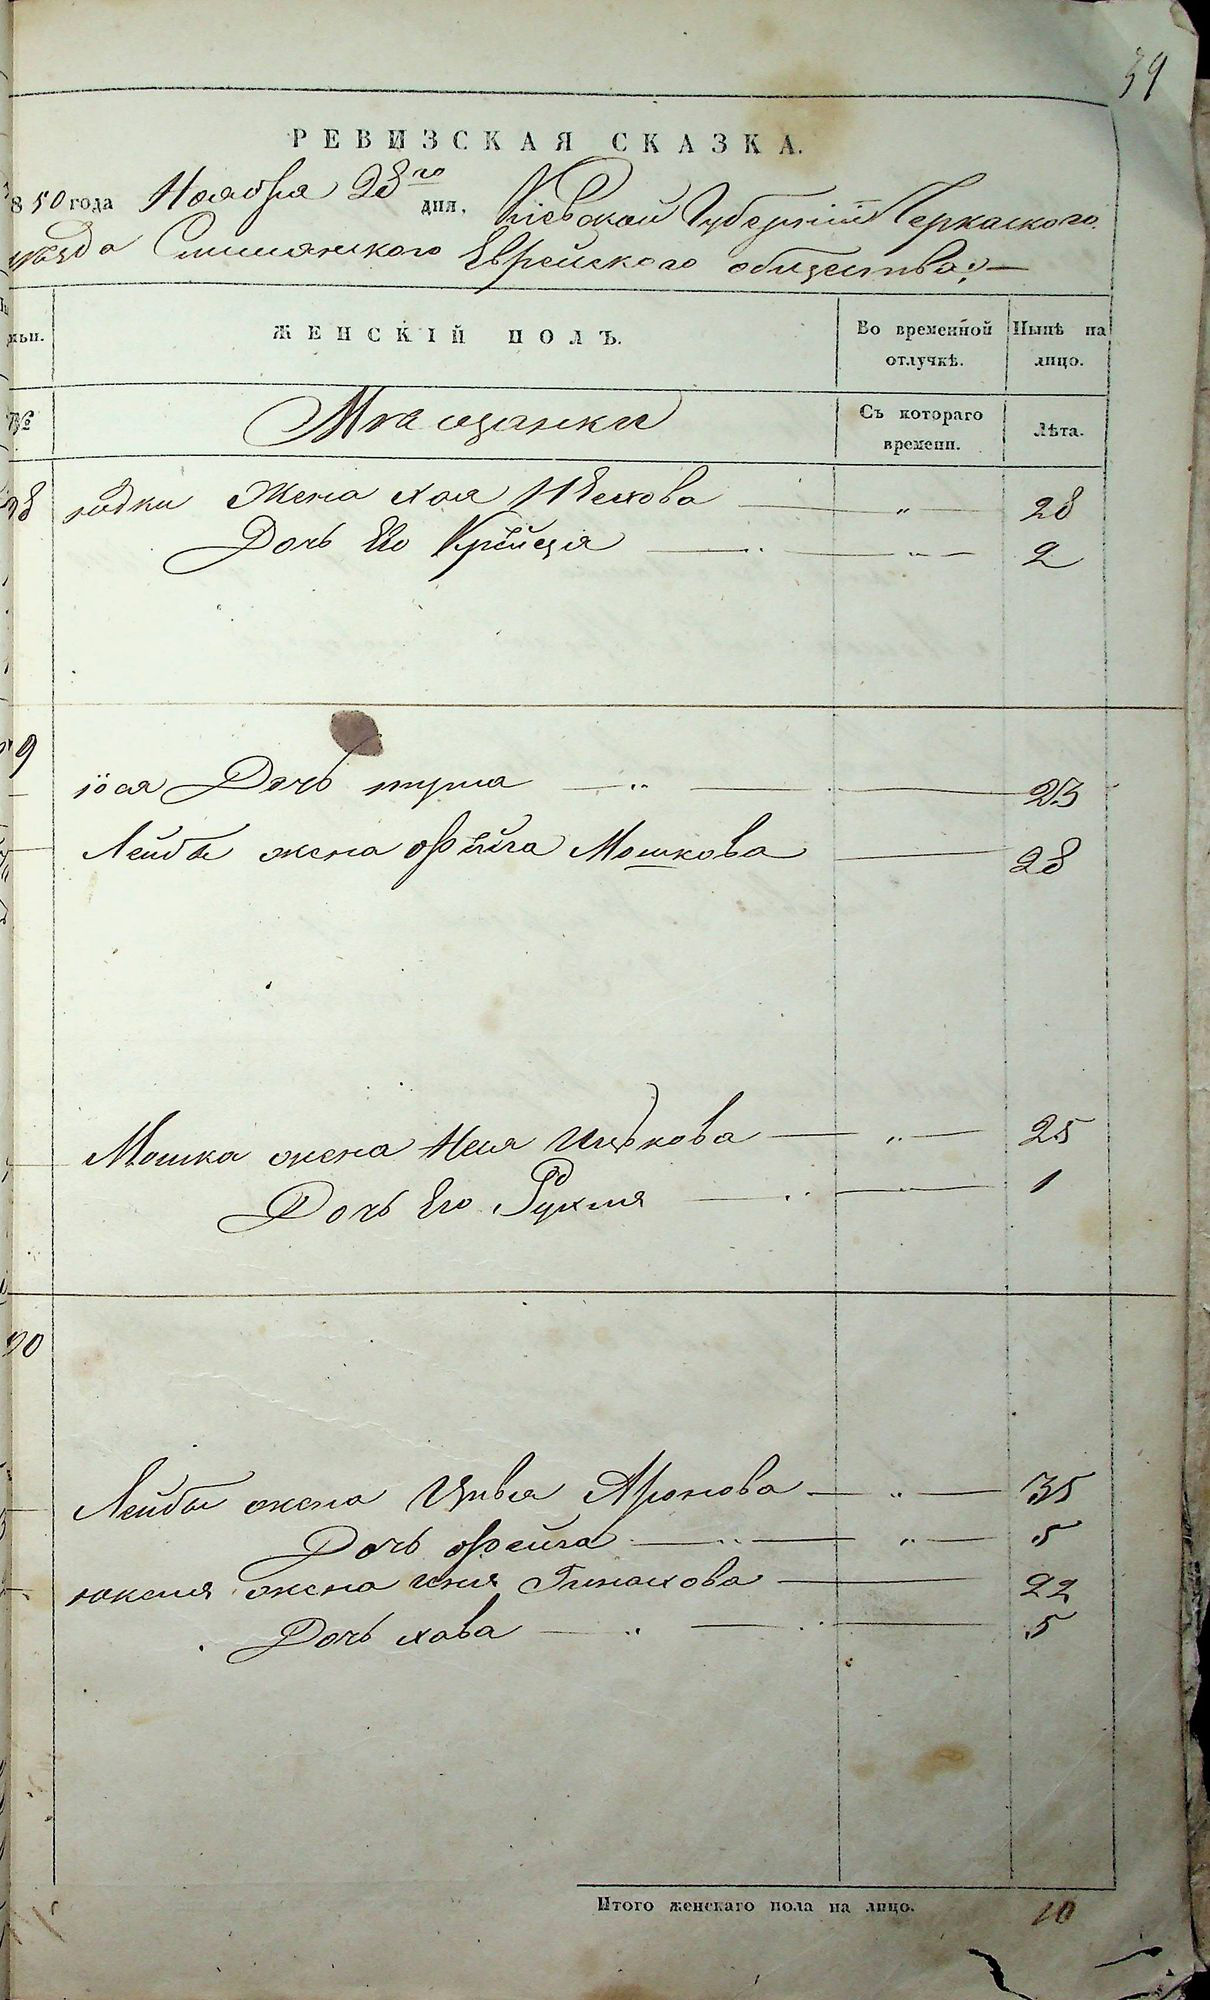 39
РЕВИЗСКАЯ СКАЗКА.
1850 года Ноября 28го дня, Кіевской Губерніи Черкаского
уѣзда Смилянского Еврейского общества:—
ЖЕНСКІЙ ПОЛЪ.
Во временной отлучкѣ.
Нынѣ на лицо.
№
Мѣщанки
Съ котораго времени.
Лѣта.
28 Жена Хая 28
Дочь Его Крейця 2
9
Дочь 23
Лейбы жена Фейга Мошкова 28
Мошка жена Неся Ицькова 25
Дочь Его Рухля 1
20
Лейбы жена Цивья Аронова 35
Дочь Фейга 5
жена 22
Дочь Хава 5
Итого женскаго пола на лицо. 10